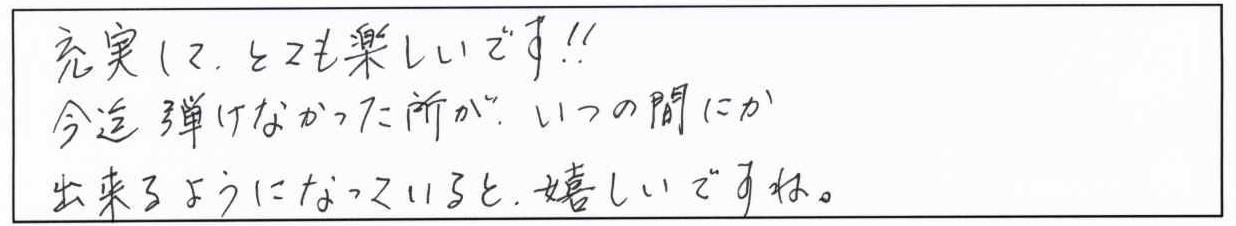 充実して、とても楽しいです!!
今迄弾けなかった所が、いつの間にか
出来るようになっていると、嬉しいですね。